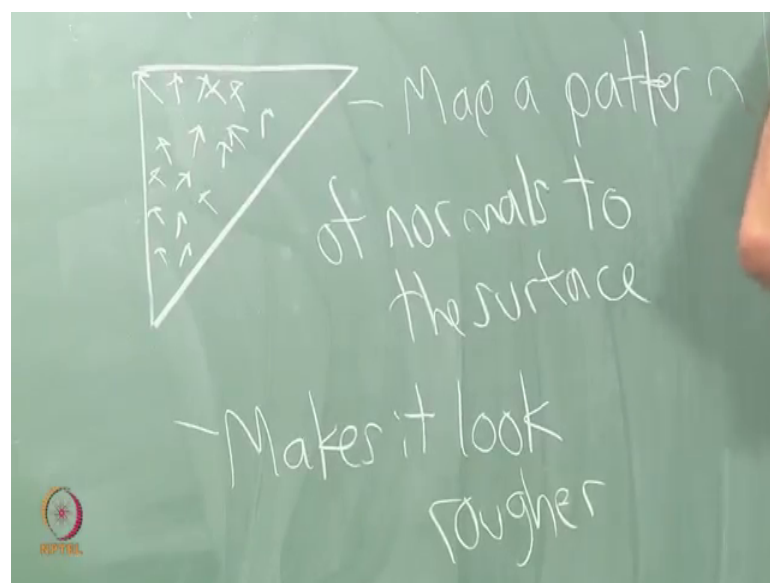 - Map a pattern
of normals to
the surface
- Makes it look
rougher
NPTEL